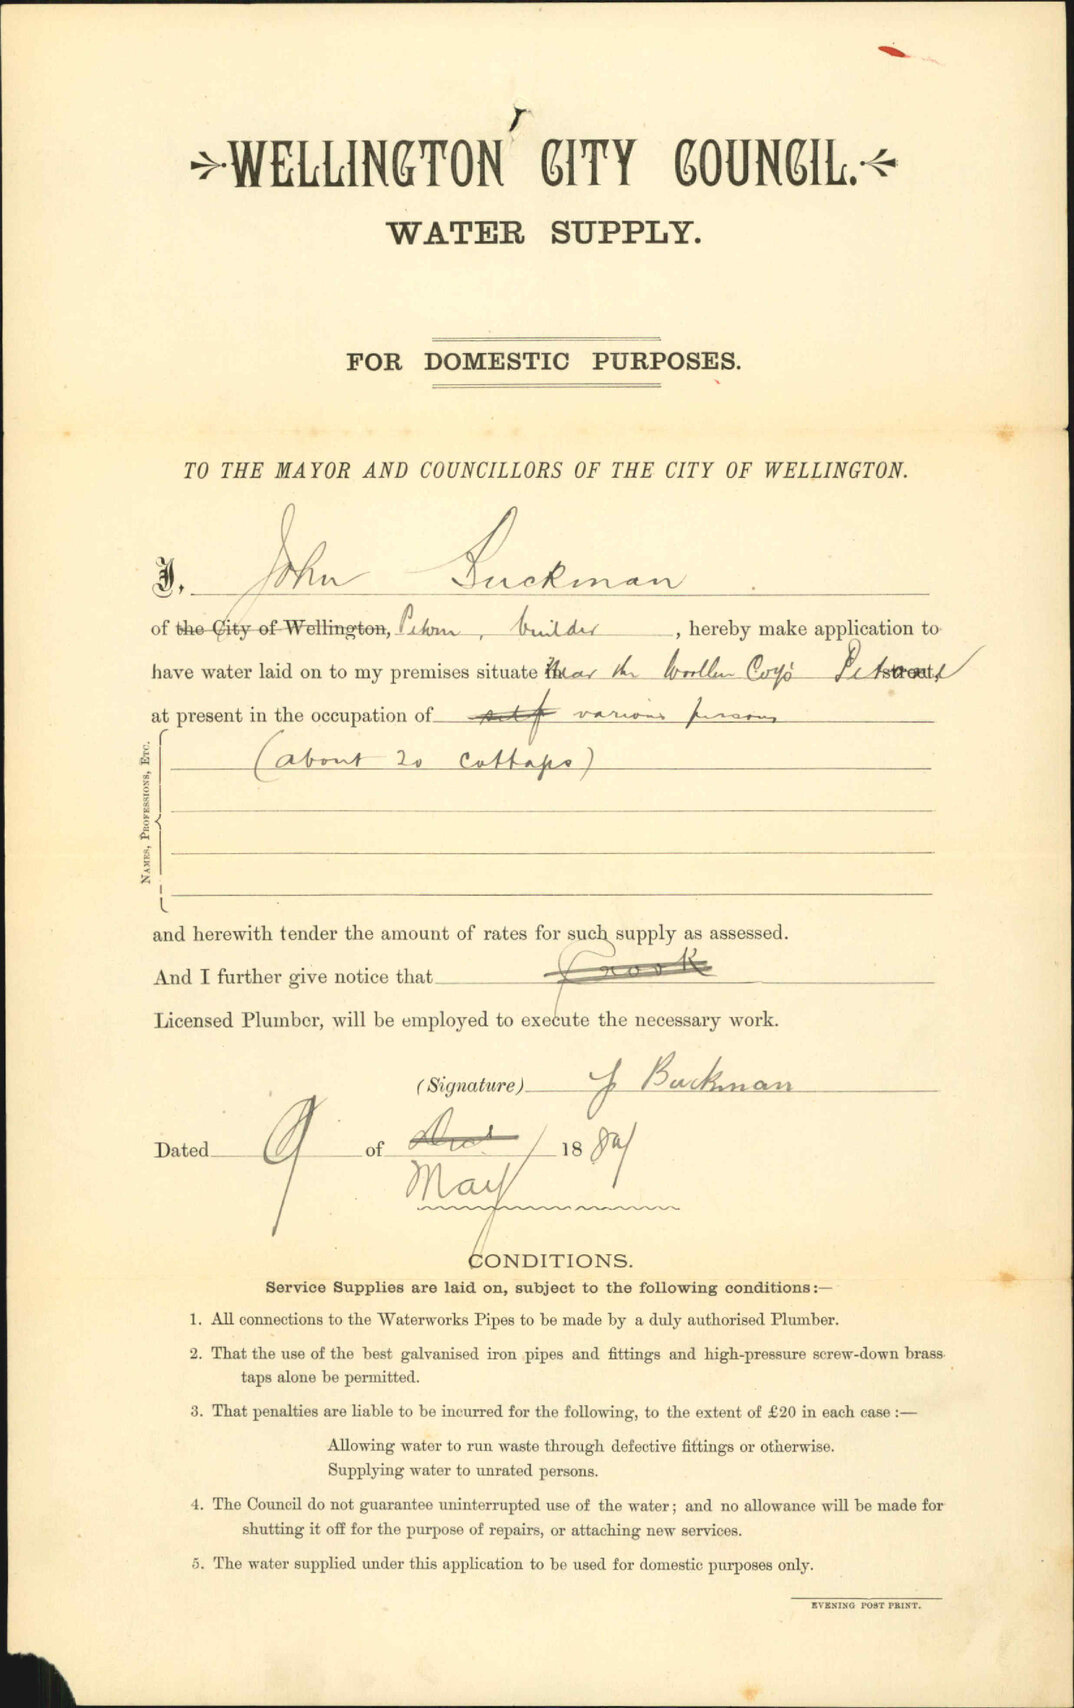 WELLINGTON CITY COUNCIL.
WATER SUPPLY.
FOR DOMESTIC PURPOSES.
TO THE MAYOR AND COUNCILLORS OF THE CITY OF WELLINGTON.
I, John Buckman
of the City of Wellington, Petone, builder, hereby make application to
have water laid on to my premises situate near the Woollen Coy's Petone street,
at present in the occupation of self various persons
(about 20 cottages)
NAMES, PROFESSIONS, ETC.
and herewith tender the amount of rates for such supply as assessed.
And I further give notice that
Licensed Plumber, will be employed to execute the necessary work.
(Signature) J Buckman
Dated 9 of 18
May
CONDITIONS.
Service Supplies are laid on, subject to the following conditions:—
1. All connections to the Waterworks Pipes to be made by a duly authorised Plumber.
2. That the use of the best galvanised iron pipes and fittings and high-pressure screw-down brass
taps alone be permitted.
3. That penalties are liable to be incurred for the following, to the extent of £20 in each case :—
Allowing water to run waste through defective fittings or otherwise.
Supplying water to unrated persons.
4. The Council do not guarantee uninterrupted use of the water; and no allowance will be made for
shutting it off for the purpose of repairs, or attaching new services.
5. The water supplied under this application to be used for domestic purposes only.
EVENING POST PRINT.